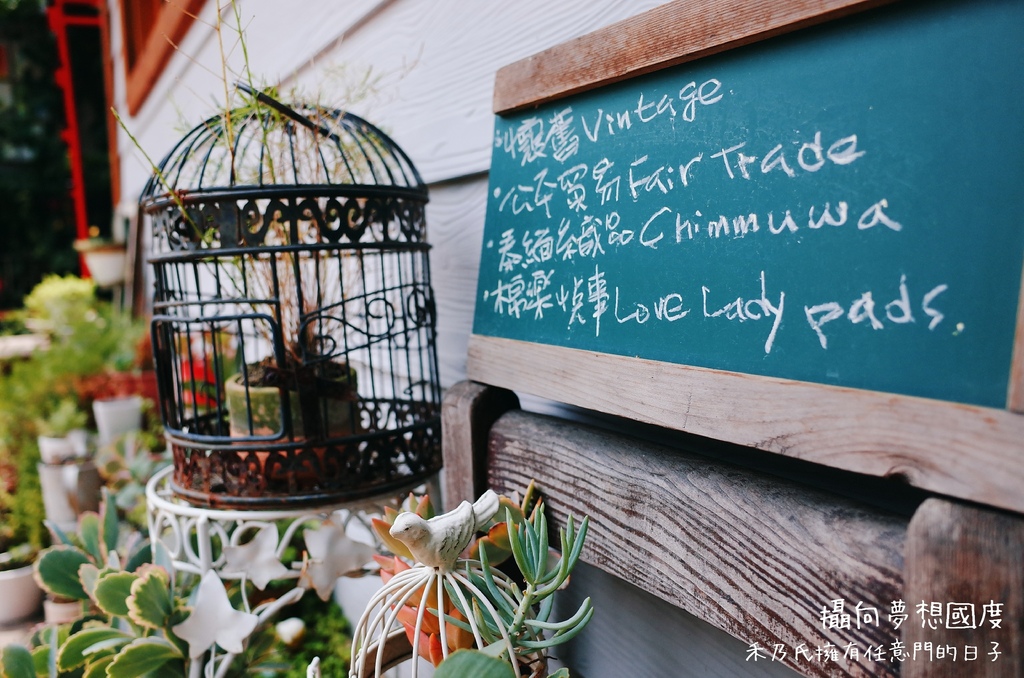 ·懷舊Vintage.
·公平貿易Fair Trade
·泰緬織品Chimmuwa
·棉樂悅事Love Lady pads.
攝向夢想國度
禾乃氏擁有任意門的日子